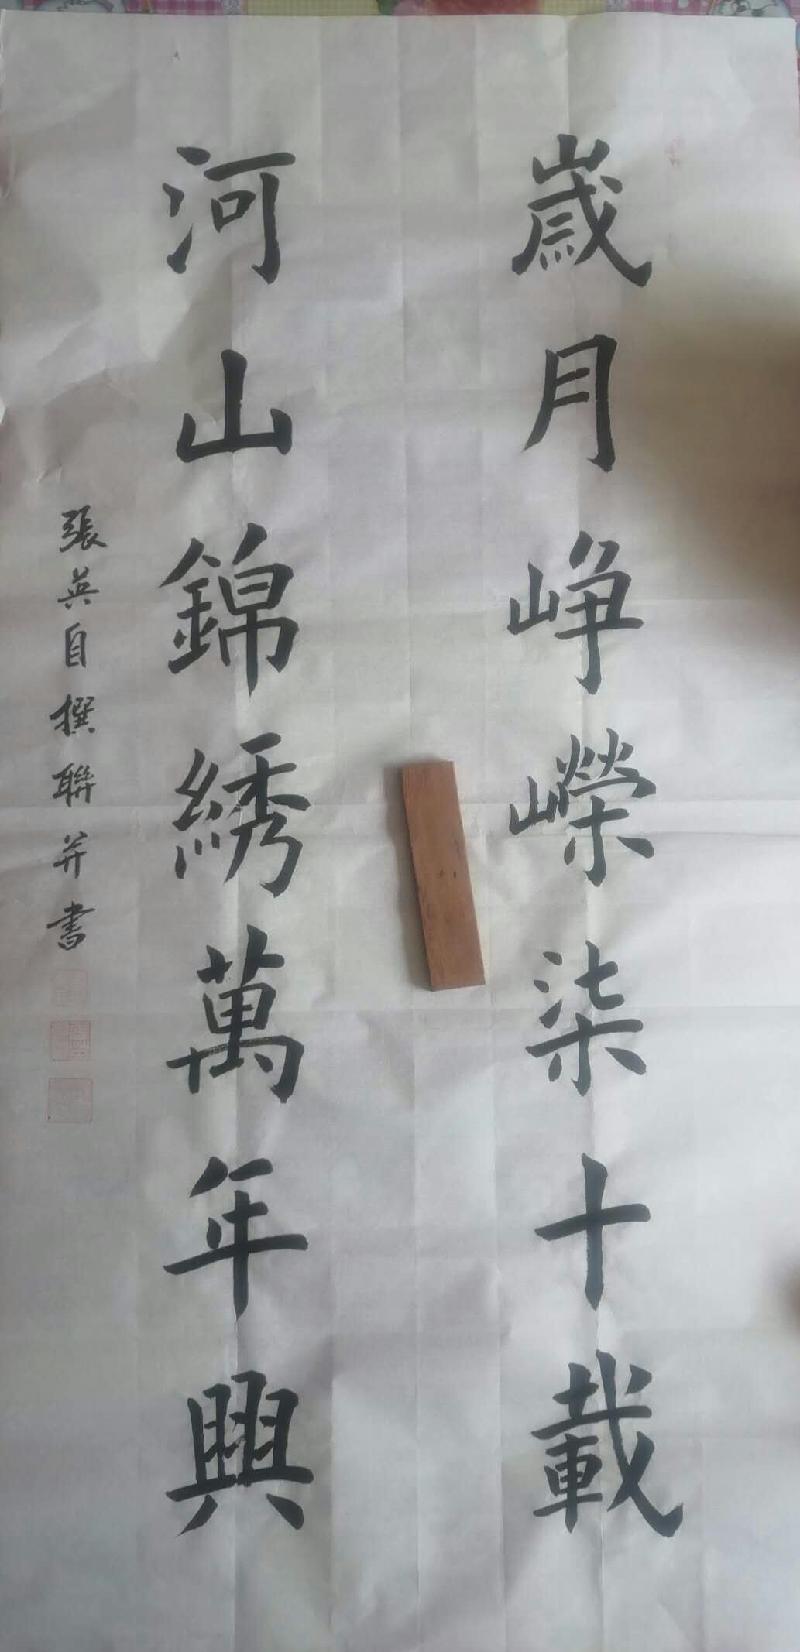 歲月峥嶸柒十載
河山錦綉萬年興
張英自撰聯并書